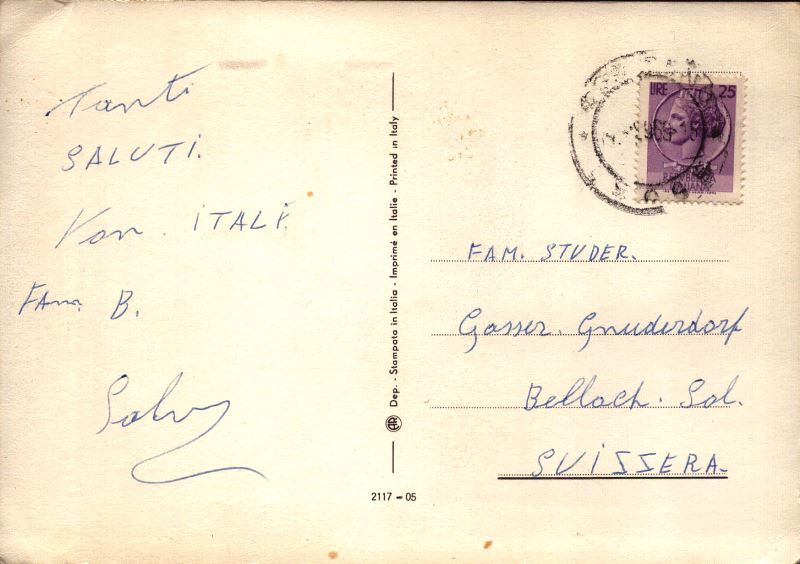 Tanti
SALUTI.
Von. ITALI.
FAM. B.
Dep. - Stampata in Italia - Imprimé en Italie - Printed in Italy
2117 - 05
LIRE 25
FAM. STUDER.
Gasser. Gnuderdorf
Bellach. Sol.
SUISSERA.